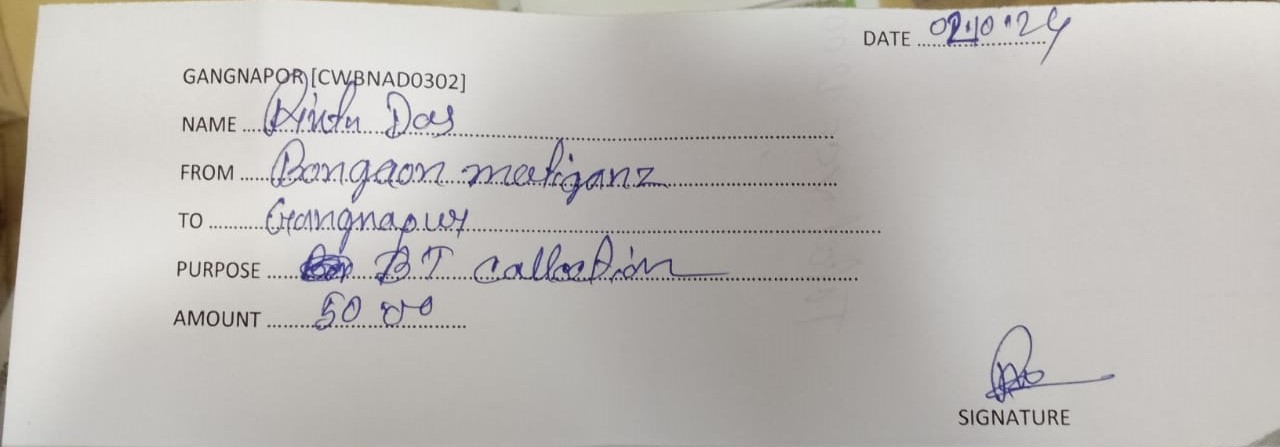 DATE 02.10.24
GANGNAPOR [CWBNAD0302]
NAME Rintu Das
FROM Bongaon matiganz
TO Gangnapur
PURPOSE BT callection
AMOUNT 50 00
SIGNATURE